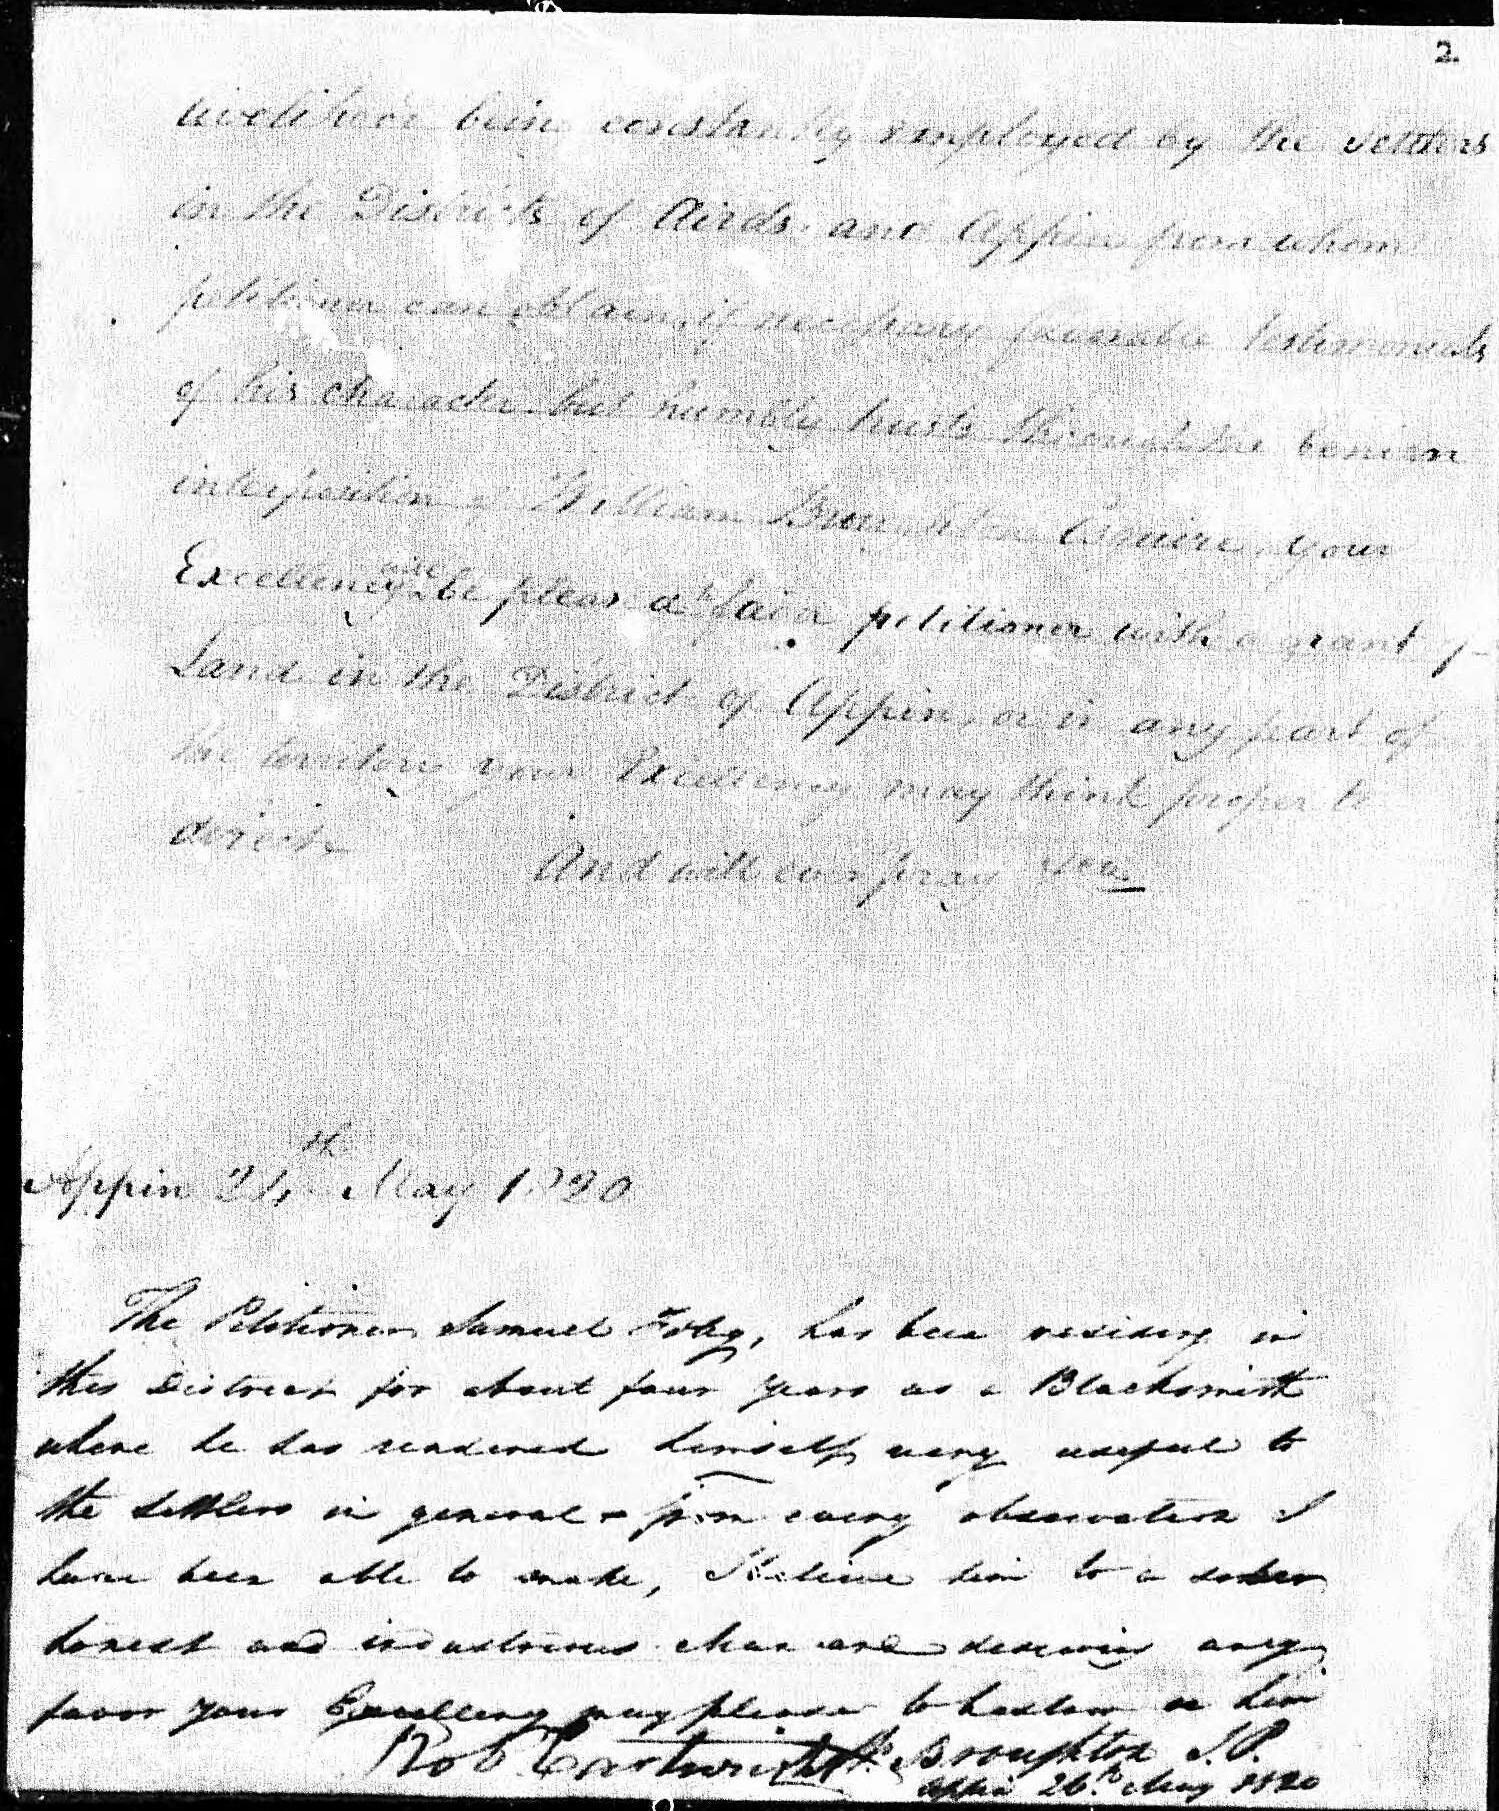 2.
livelihood being constantly employed by the settlers
in the Districts of Airds and Appin from whom
petitioner can obtain, if necessary favorable testimonials
of his character but humbly trusts through the benign
interposition of William Broughton Esquire, your
Excellency will be pleas'd to favor petitioner with a grant of
Land in the District of Appin, or in any part of
the territory your Excellency may think proper to
direct
And will ever pray
Appin 24th May 1820
The Petitioner Samuel Foley, has been residing in
this District for about four years as a Blacksmith
where he has rendered himself very useful to
the settlers in general & from every observation I
have been able to make, I believe him to a sober
honest and industrious Man and deserving any
favor Your Excellency may please to bestow on him
Rob Cartwright Wm Broughton J.P.
Appin 26th May 1820